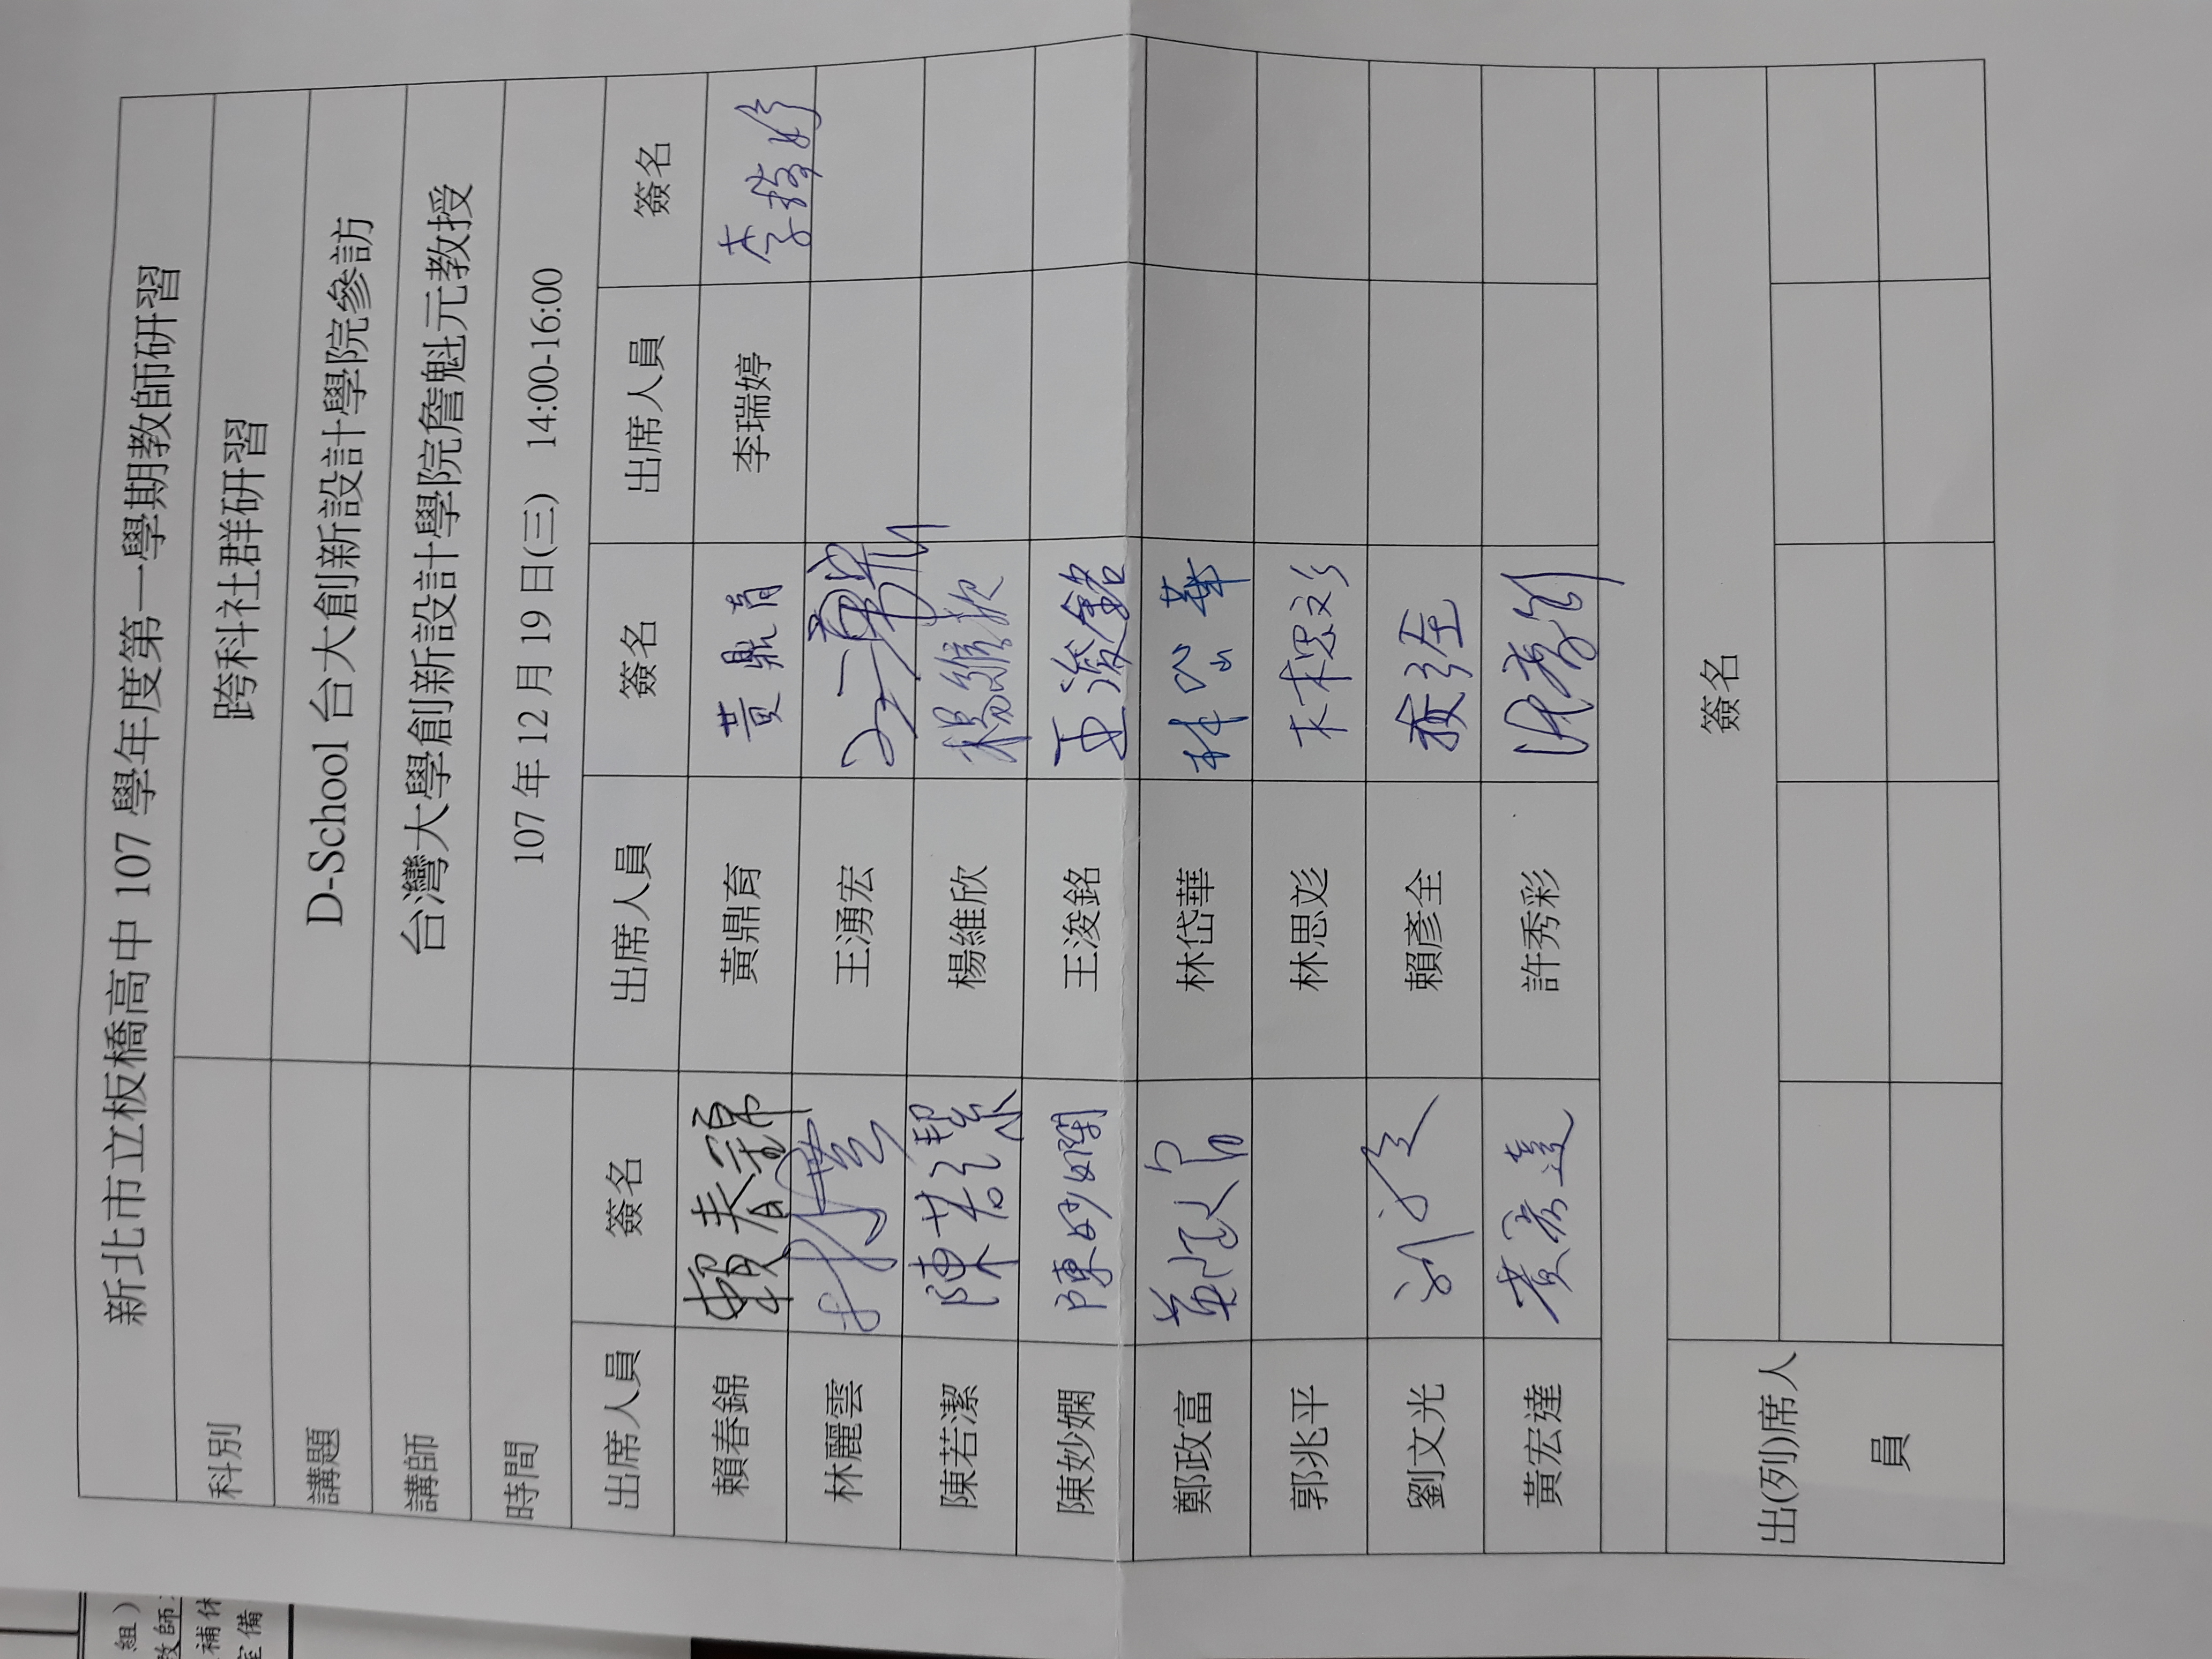 組)
教師
補休
室備
新北市立板橋高中 107 學年度第一學期教師研習
科別 跨科社群研習
講題 D-School 台大創新設計學院參訪
講師 台灣大學創新設計學院詹魁元教授
時間 107 年 12 月 19 日(三) 14:00-16:00
出席人員 簽名 出席人員 簽名 出席人員 簽名
賴春錦 賴春錦 黃鼎育 黃鼎育 李瑞婷 李瑞婷
林麗雲 王湧宏 王湧宏
陳若潔 陳若潔 楊維欣 楊維欣
陳妙嫻 陳妙嫻 王浚銘 王浚銘
鄭政富 鄭政富 林岱華 林岱華
郭兆平 林思彣 林思彣
劉文光 賴彥全
黃宏達 黃宏達 許秀彩
簽名
出(列)席人
員